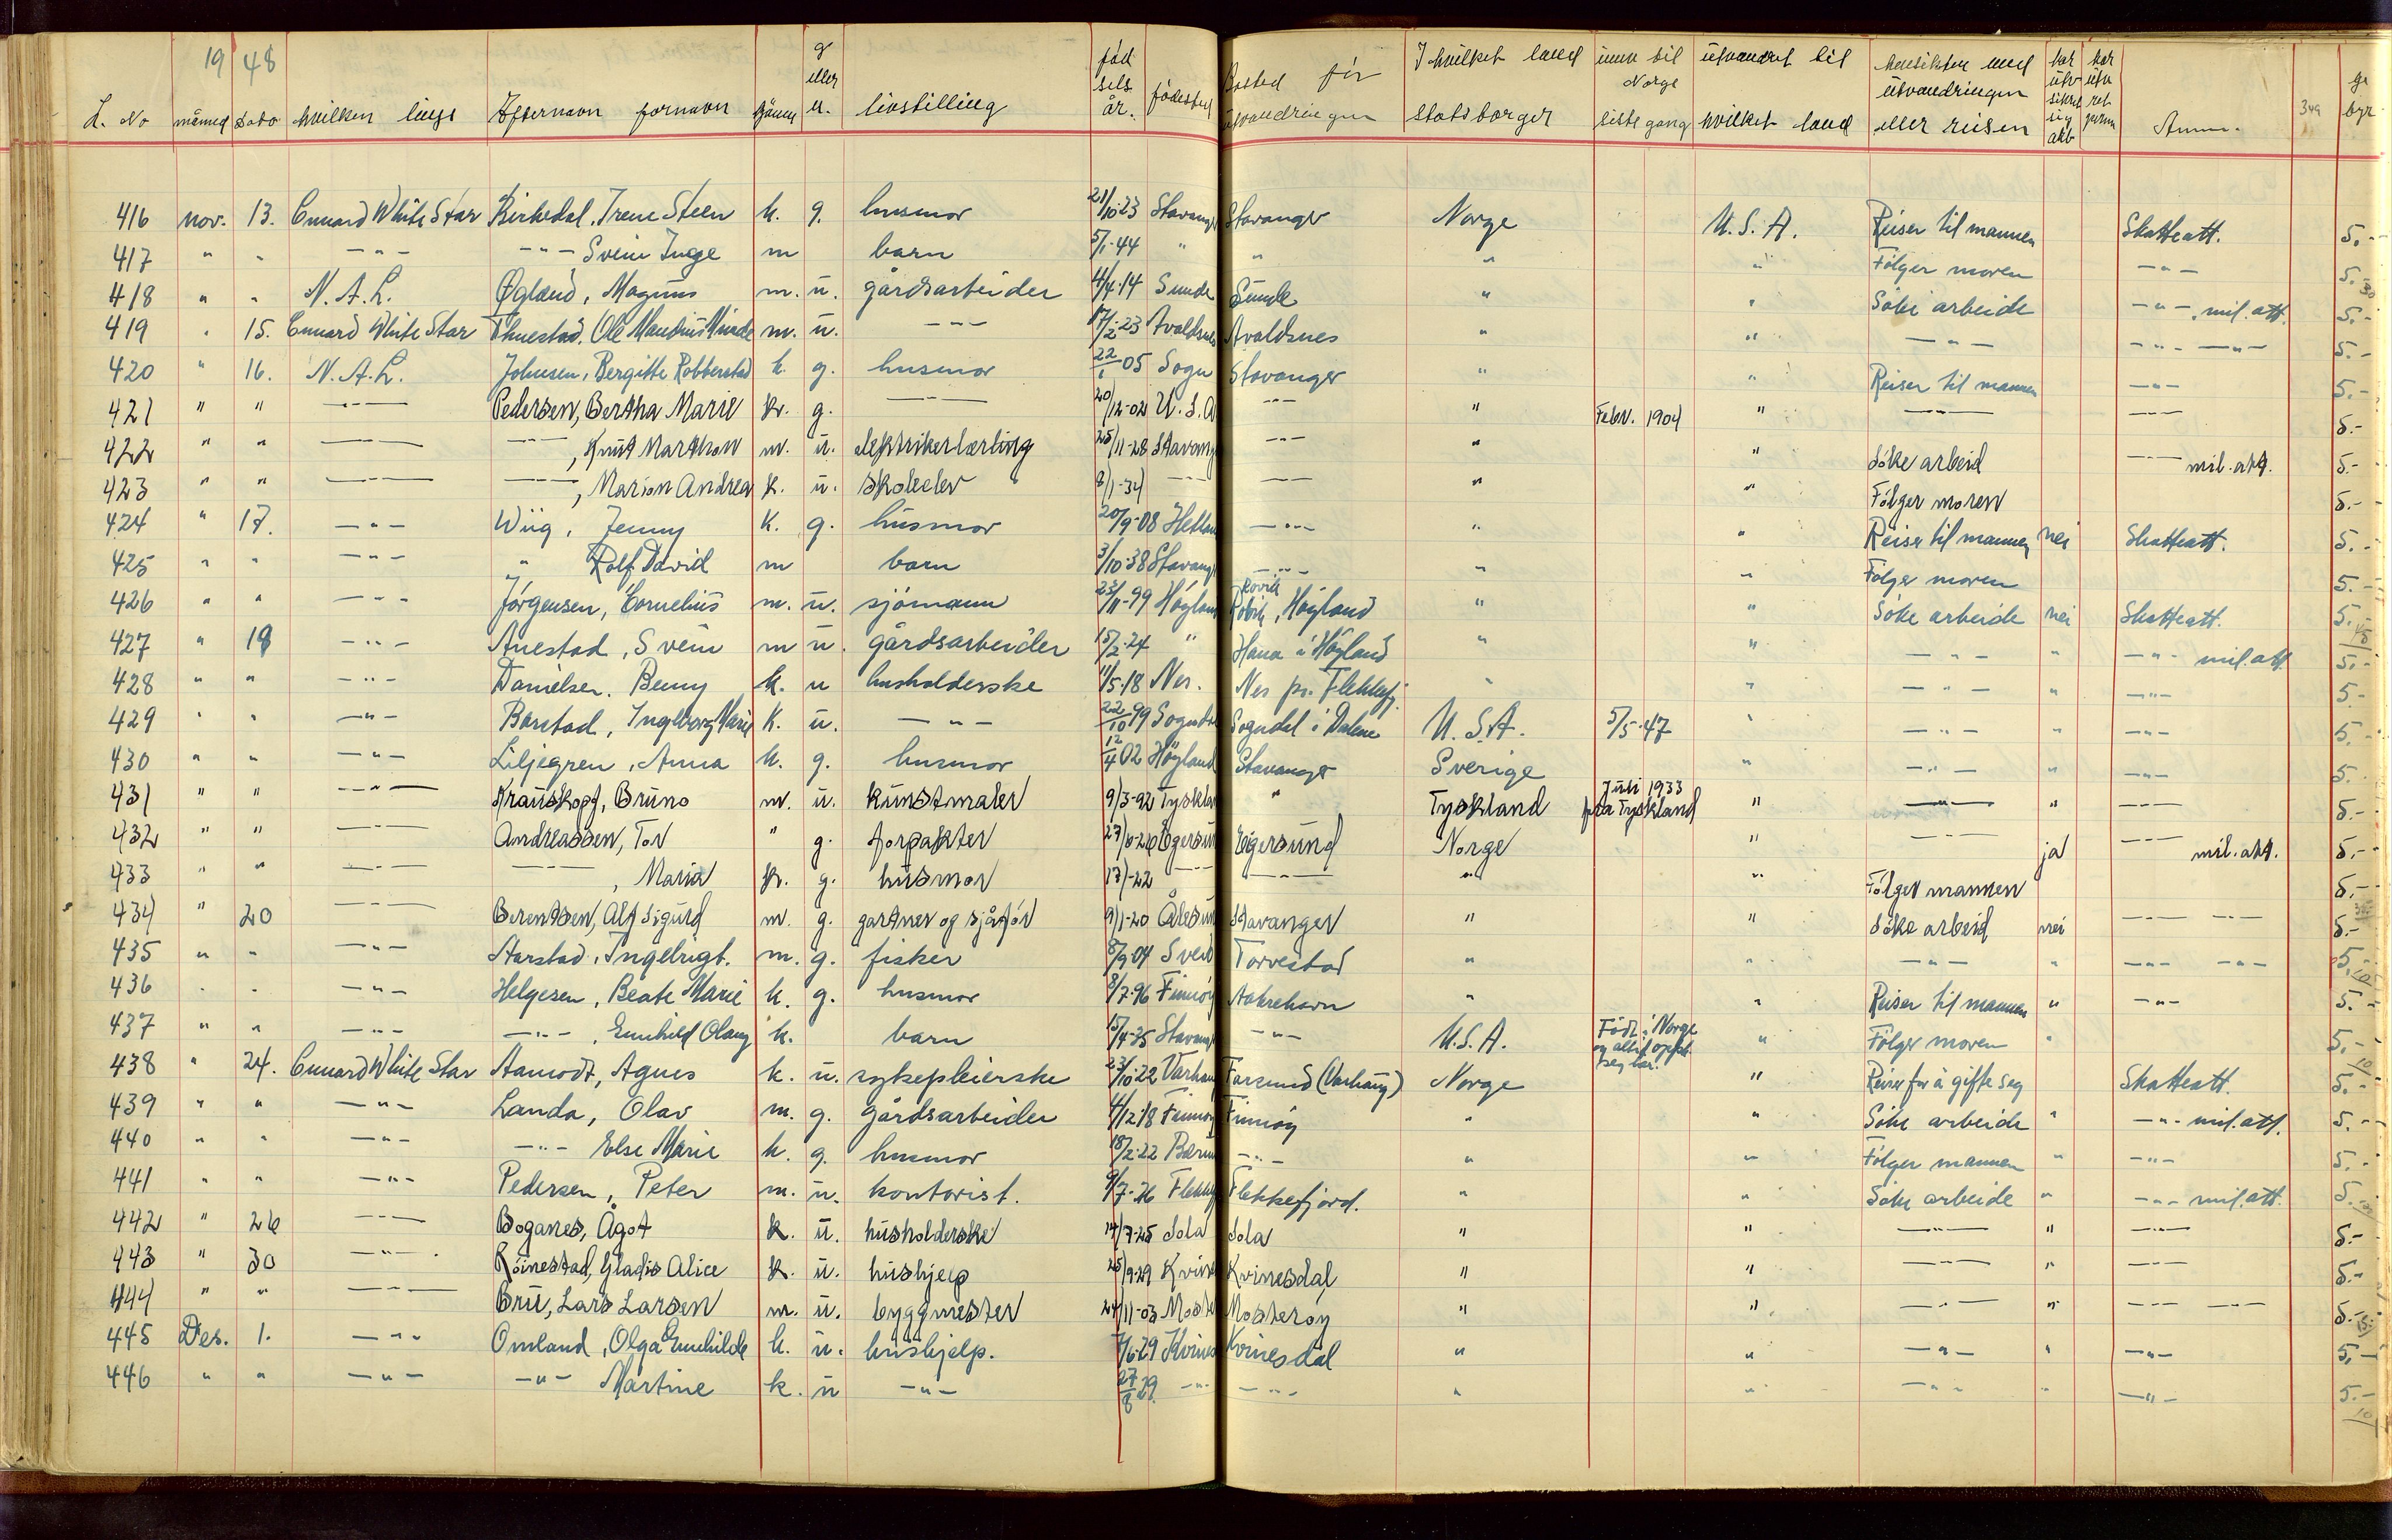 19 48
L. No måned Dato hvilken linje Efternavn fornavn kjønn g eller u. livstilling fød sels år. fødested Bosted før utvandringen I hvilket land statsborger innv til Norge siste gang utvandret til hvilket land hensikten med utvandringen eller reisen har utv sikret sig arb har utv ret Anm. 349 ge byr
416 nov. 13. Cunard White Star Birkedal, Irene Steen k. g. husmor 21/10-23 Stavang Stavanger Norge U.S.A. Reiser til mannen Skatteatt. 5.-
417 " " -"- -"- Svein Inge m barn 5/1-44 " " " " Følger moren -"- 5.-
418 " " N.A.L. Øgland, Magnus m. u. gårdsarbeider 4/4-14 Sunde Sunde " " Søke arbeide -"- mil. att. 5.-
419 " 15. Cunard White Star Thuestad, Ole Mandius m. u. -"- 17/2-23 Avaldsnes Avaldsnes " " -"- -"- -"- 5.-
420 " 16. N.A.L. Johnsen, Bergitte Robberstad k. g. husmor 22/1 05 Sogn Stavanger " " Reiser til mannen -"- 5.-
421 " " -"- Pedersen, Bertha Marie k. g. -"- 20/12-02 U.S.A -"- " Febr. 1904 " -"- -"- 5.-
422 " " -"- -"-, Knut Marthon m. u. elektrikerlærling 25/11-28 Stavang -"- " " Søke arbeid -"- mil. att. 5.-
423 " " -"- -"-, Marion Andrea k. u. skoleelev 8/1-34 -"- -"- " " Følger moren 5.-
424 " 17. -"- Wiig, Jenny k. g. husmor 20/9-08 Hetlan -"- " " Reiser til mannen nei Skatteatt. 5.-
425 " " -"- " Rolf David m barn 3/10-38 Stavang -"- " " Følger moren 5.-
426 " " -"- Jørgensen, Cornelius m. u. sjømann 23/11-99 Høyland Rovik, Høyland " " Søke arbeide nei Skatteatt. 5.-
427 " 18 -"- Anestad, Svein m u. gårdsarbeider 15/2-24 " Hana i Høyland " " -"- " -"- mil. att. 5.-
428 " " -"- Danielsen, Benny k. u husholderske 11/5-18 Nes. Nes pr. Flekkefj. " " -"- " -"- 5.-
429 " " -"- Barstad, Ingeborg Marie k. u. -"- 22/10 99 Sogndal Sogndal i Dalene U.S.A. 5/5-47 " -"- " -"- 5.-
430 " " -"- Liljegren, Anna k. g. husmor 12/4 02 Høyland Stavanger Sverige " -"- " -"- 5.-
431 " " -"- Krauskopf, Bruno m. u. kunstmaler 9/3-92 Tysklan " Tyskland Juli 1933 fra Tyskland " -"- " -"- 5.-
432 " " -"- Andreassen, Tor " g. forpakter 27/6-26 Egersun Egersund Norge " -"- ja -"- mil. att. 5.-
433 " " -"- -"-, Maria k. g. husmor -22 -"- -"- " " Følger mannen 5.-
434 " 20 -"- Berentsen, Alf Sigurd m. g. gartner og sjåfør 9/1-20 Ålesun Stavanger " " Søke arbeid nei -"- -"- 5.-
435 " " -"- Aarstad, Ingebrigt. m. g. fisker 8/9-04 Svei Torvestad " " -"- " -"- -"- 5.-
436 " " -"- Helgesen, Beate Marie k. g. husmor 8/7-96 Finnøy Aakrehavn " " Reiser til mannen " -"- 5.-
437 " " -"- -"-, Gunhild Olaug k. barn 15/4-35 Stavang -"- U.S.A. Født i Norge og altid opph. seg her. " Følger moren " 5.-
438 " 24. Cunard White Star Aamodt, Agnes k. u. sykepleierske 23/10-22 Varhau Farsund (Varhaug) Norge " Reiser for å gifte seg Skatteatt. 5.-
439 " " -"- Landa, Olav m. g. gårdsarbeider 4/12-18 Finnøy Finnøy " " Søke arbeide " -"- mil. att. 5.-
440 " " -"- -"- Else Marie k. g. husmor 18/2-22 Bærum -"- " " Følger mannen " -"- 5.-
441 " " -"- Pedersen, Peter m. u. kontorist. 9/7-26 Flekkef Flekkefjord. " " Søke arbeide " -"- mil. att. 5.-
442 " 26 -"- Boganes, Ågot k. u. husholderske 14/7-25 Sola Sola " " -"- " -"- 5.-
443 " 30 -"- Röinestad, Gladis Alice k. u. hushjelp 25/9-29 Kvines Kvinesdal " " -"- " -"- 5.-
444 " " -"- Bru, Lars Larsen m. u. byggmester 24/11-03 Moste Mosterøy " " -"- " -"- -"- 5.-
445 Des. 1. -"- Omland, Olga Gunhilde k. u. hushjelp. 7/6-29 Kvines Kvinesdal " " -"- " -"- 5.-
446 " " -"- -"- Martine k. u -"- 27/8 29. -"- -"- " " -"- " -"- 5.-